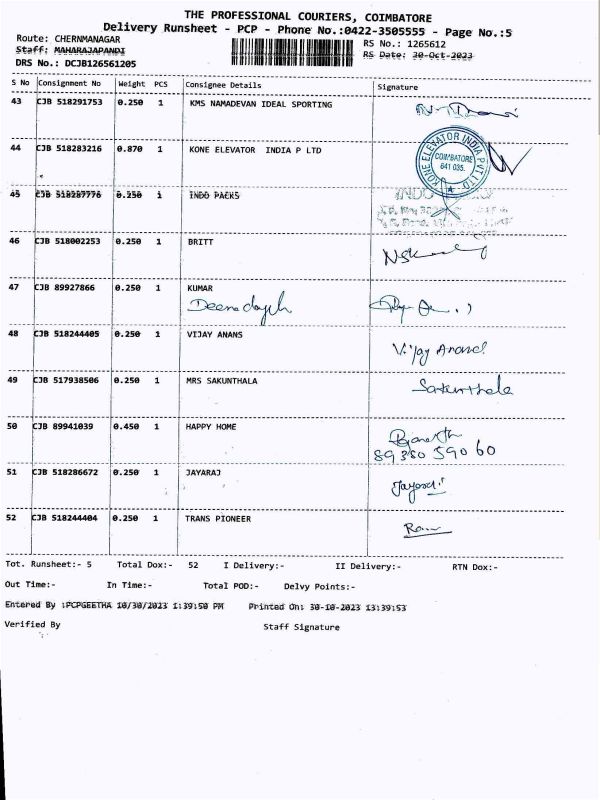 THE PROFESSIONAL COURIERS, COIMBATORE
Delivery Runsheet - PCP - Phone No.:0422-3505555 - Page No.:5
Route: CHERNMANAGAR
RS No.: 1265612
Staff: MAHARAJAPANDI
RS Date: 30-Oct-2023
DRS No.: DCJB126561205
S No Consignment No Weight PCS Consignee Details Signature
43 CJB 518291753 0.250 1 KMS NAMADEVAN IDEAL SPORTING
44 CJB 518283216 0.870 1 KONE ELEVATOR INDIA P LTD
KONE ELEVATOR INDIA PVT LTD
COIMBATORE
641 035.
45 CJB 518287776 0.250 1 INDO PACKS
INDO
46 CJB 518002253 0.250 1 BRITT
47 CJB 89927866 0.250 1 KUMAR
Deenadayal
48 CJB 518244405 0.250 1 VIJAY ANANS
Vijay Anand
49 CJB 517938506 0.250 1 MRS SAKUNTHALA
Sakunthala
50 CJB 89941039 0.450 1 HAPPY HOME
89380 59060
51 CJB 518286672 0.250 1 JAYARAJ
52 CJB 518244404 0.250 1 TRANS PIONEER
Tot. Runsheet:- 5 Total Dox:- 52 I Delivery:- II Delivery:- RTN Dox:-
Out Time:- In Time:- Total POD:- Delvy Points:-
Entered By :PCPGEETHA 10/30/2023 1:39:50 PM Printed On: 30-10-2023 13:39:53
Verified By Staff Signature